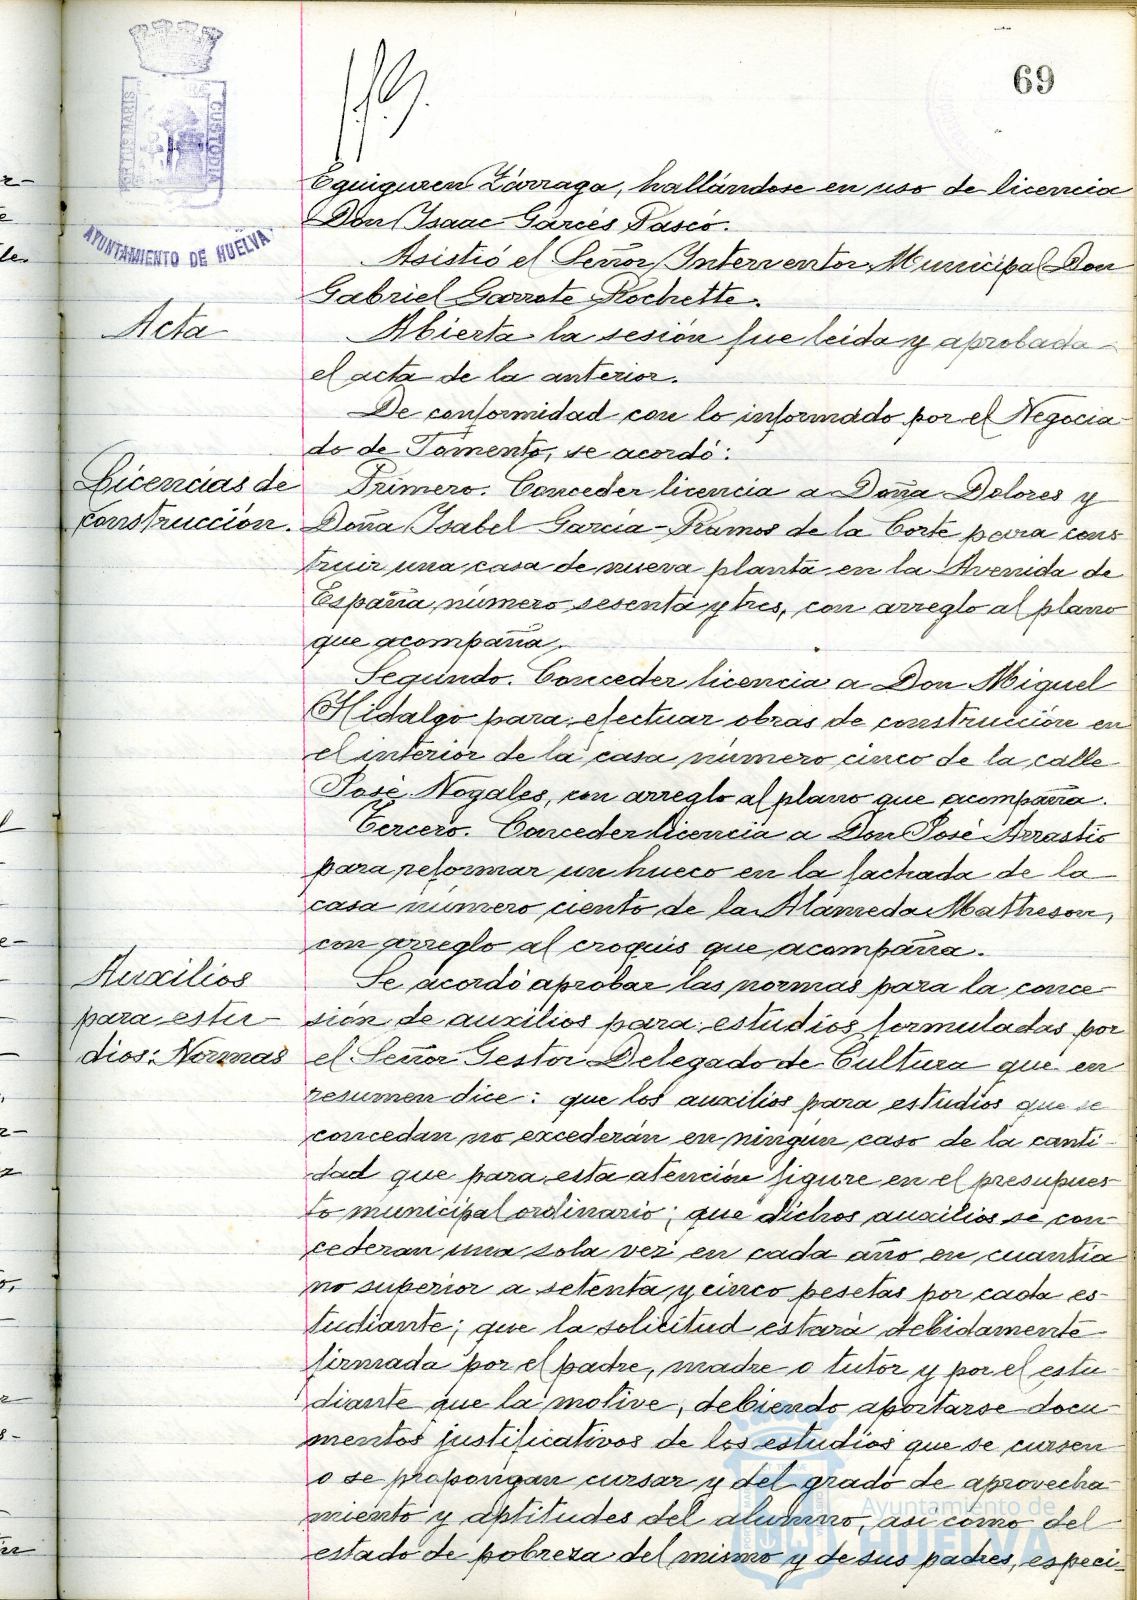 69
PORTUS MARIS
CUSTODIA
AYUNTAMIENTO DE HUELVA
Eguiguren Zárraga, hallándose en uso de licencia
Don Isaac Garcés Pascó.
Asistió el Señor Interventor Municipal Don
Gabriel Garrote Rochette.
Acta
Abierta la sesión fue leida y aprobada
el acta de la anterior.
De conformidad con lo informado por el Negocia-
do de Fomento, se acordó:
Licencias de
construcción.
Primero. Conceder licencia a Doña Dolores y
Doña Isabel García-Ramos de la Corte para cons
truir una casa de nueva planta en la Avenida de
España, número sesenta y tres, con arreglo al plano
que acompaña.
Segundo. Conceder licencia a Don Miguel
Hidalgo para efectuar obras de construcción en
el interior de la casa número cinco de la calle
José Nogales, con arreglo al plano que acompaña.
Tercero. Conceder licencia a Don José Arrastio
para reformar un hueco en la fachada de la
casa número ciento de la Alameda Matheson,
con arreglo al croquis que acompaña.
Auxilios
para estu-
dios: Normas
Se acordó aprobar las normas para la conce-
sión de auxilios para estudios formuladas por
el Señor Gestor Delegado de Cultura que en
resumen dice: que los auxilios para estudios que se
concedan no excederán en ningún caso de la canti-
dad que para esta atención figure en el presupues-
to municipal ordinario; que dichos auxilios se con-
cederan una sola vez en cada año en cuantia
no superior a setenta y cinco pesetas por cada es-
tudiante; que la solicitud estará debidamente
firmada por el padre, madre o tutor y por el estu-
diante que la motive, debiendo aportarse docu-
mentos justificativos de los estudios que se cursen
o se propongan cursar y del grado de aprovecha-
miento y aptitudes del alumno, asi como del
estado de pobreza del mismo y de sus padres, especi-
Ayuntamiento de
HUELVA